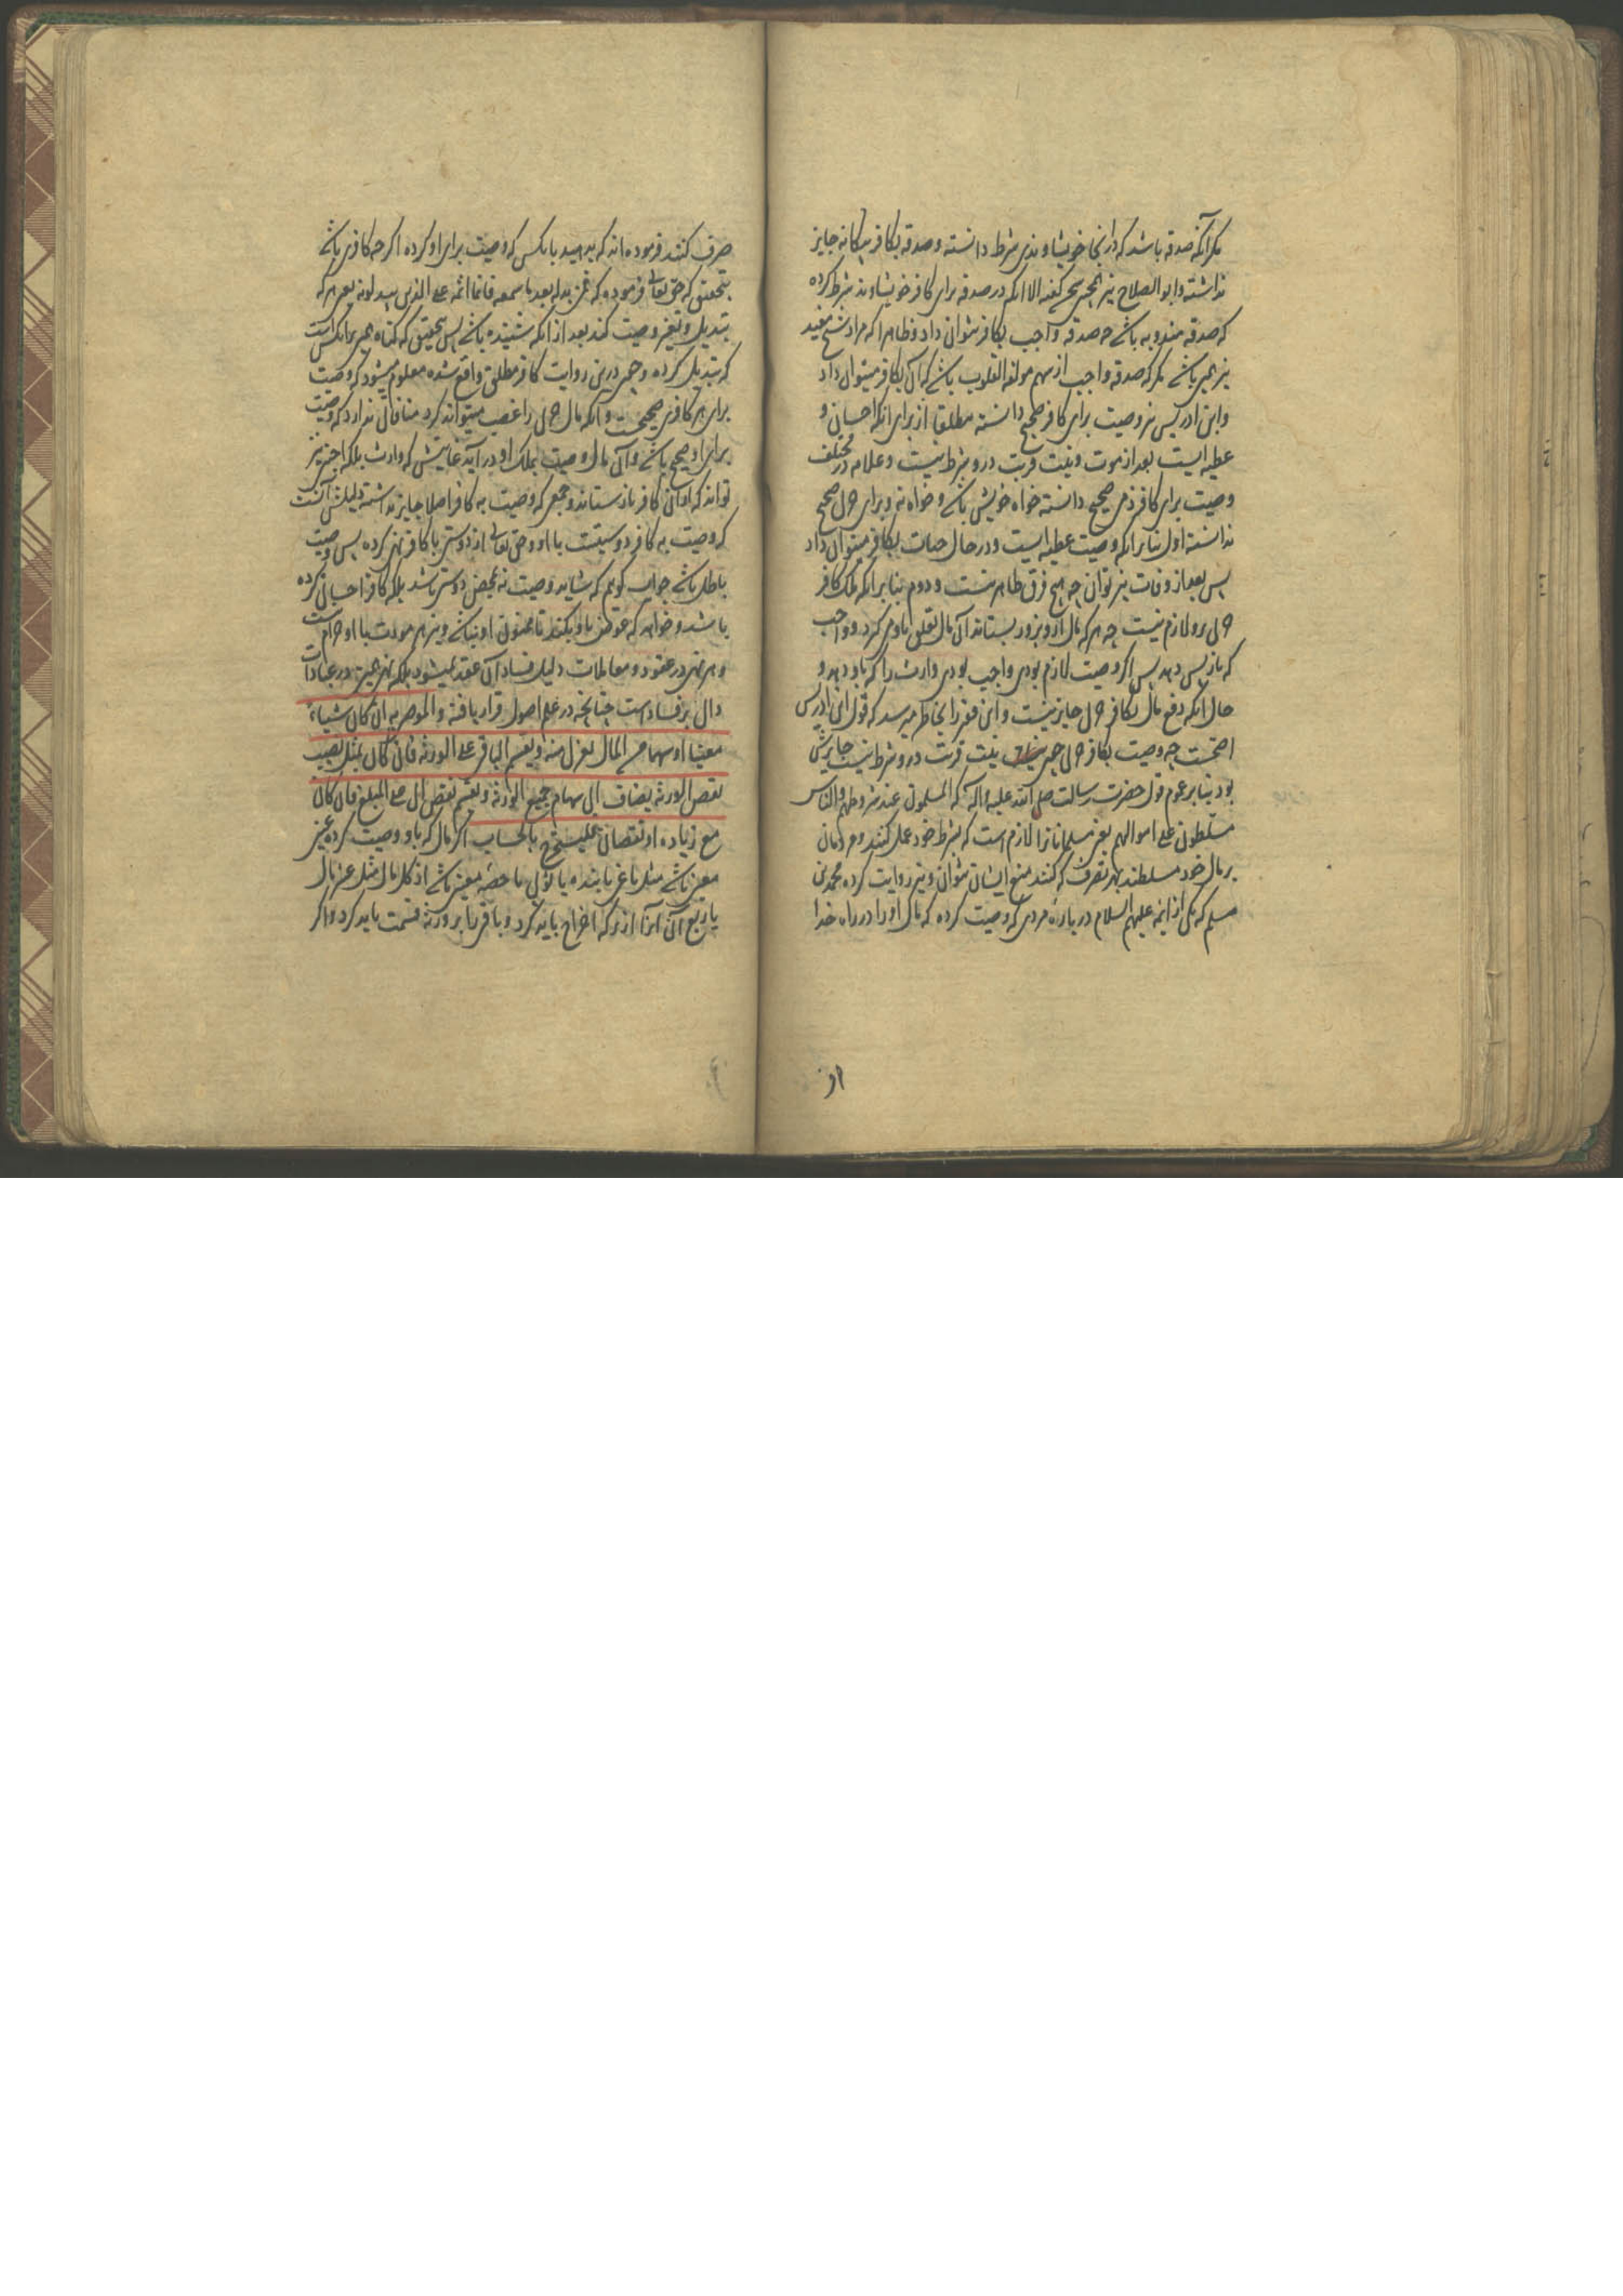 مکر آنکه صدقه باشد که در آنجا خویشاوندی شرط دانسته و صدقه بکافر بیکانه جایز
نداشته و ابو الصلاح نیز کفته الا آنکه در صدقه برای کافر خویشاوند شرط کرده
که صدقه مندوبه باشد چه صدقه واجب بکافر نتوان داد و ظاهرا که مراد شیخ مفید
نیز همین باشد مکر که صدقه واجب از سهم مولفة القلوب باشد که آن بکافر میتوان داد
و ابن ادریس نیز وصیت برای کافر صحیح دانسته مطلقا از برای آنکه احسان و
عطیه ایست بعد از موت و نیت قربت درو شرط نیست و علامه در مختلف
وصیت برای کافر ذمی صحیح دانسته خواه خویش باشد و خواه نه و برای حربی صحیح
ندانسته اول بنابر آنکه وصیت عطیه ایست و در حال حیات بکافر میتوان داد
پس بعد از وفات نیز توان چه هیچ فرق ظاهر نیست و دوم بنابر آنکه ملک کافر
حربی برو لازم نیست چه هر که مال ازو بزور بستاند آن مال تعلق باو می کیرد و واجب
که باز پس دهد پس اکر وصیت لازم بودی واجب بودی وارث را که باو دهد و
حال آنکه دفع مال بکافر حربی جایز نیست و این فقیر را بخاطر میرسد که قول ابن ادریس
اصحست چه وصیت بکافر حربی نیت قربت درو شرط نیست جایز
بود بنابر عموم قول حضرت رسالت صلی الله علیه و آله که المسلمون عند شروطهم و الناس
مسلطون علی اموالهم یعنی مسلمانان را لازم است که بشرط خود عمل کنند و مردمان
بر مال خود مسلطند بهر تصرف که کنند منع ایشان نتوان و نیز روایت کرده محمد بن
مسلم که یکی از ائمه علیهم السلام در باره مردی که وصیت کرده که مال او را در راه خدا
صرف کنند فرموده اند که بدهید بآنکس که وصیت برای او کرده اکر چه کافری باشد
بتحقیق که حق تعالی فرموده که فمن بدله بعد ما سمعه فانما اثمه علی الذین یبدلونه یعنی هر که
تبدیل و تغییر وصیت کند بعد از آنکه شنیده باشد پس بتحقیق که کناه همین بر آنکس است
که تبدیل کرده و چون درین روایت کافر مطلق واقع شده معلوم میشود که وصیت
برای هر کافری صحیحست و آنکه مال حربی را غصب میتواند کرد منافاتی ندارد که وصیت
برای او صحیح باشد و آن مال وصیت بملک او در آید غایتش که وارث بلکه اجنبی نیز
تواند که از آن کافر باز ستاند و جمعی که وصیت به کافر اصلا جایز نداشته دلیلش آنست
که وصیت به کافر دوستیست با او و حق تعالی از دوستی با کافر نهی کرده پس وصیت
باطل باشد جواب کوئیم که شاید وصیت نه بمحض دوستی باشد بلکه کافر احسانی کرده
باشد و خواهد که عوض باو بکند تا ممنون او نباشد و نیز هر مودت با او حرام است
و هر نهی در عقود و معاملات دلیل فساد آن عقد نمیشود بلکه نهی در عبادات
دال بر فساد است چنانچه در علم اصول قرار یافته و الموصی به ان کان شیئا
معینا او سهما من المال یعزل منه و یقسم الباقی علی الورثه فان کان بمثل نصیب
بعض الورثه یضاف الی سهام جمیع الورثه و یقسم علی المبلغ فان کان
مع زیاده او نقصان بالحساب اکر مالی که باو وصیت کرده
معین باشد مثل باغی یا بنده یا پولی یا حصه معینی باشد از کل مال مثل عشر مال
یا ربع آن آنرا از ترکه اخراج باید کرد و باقی را بر ورثه قسمت باید کرد و اکر